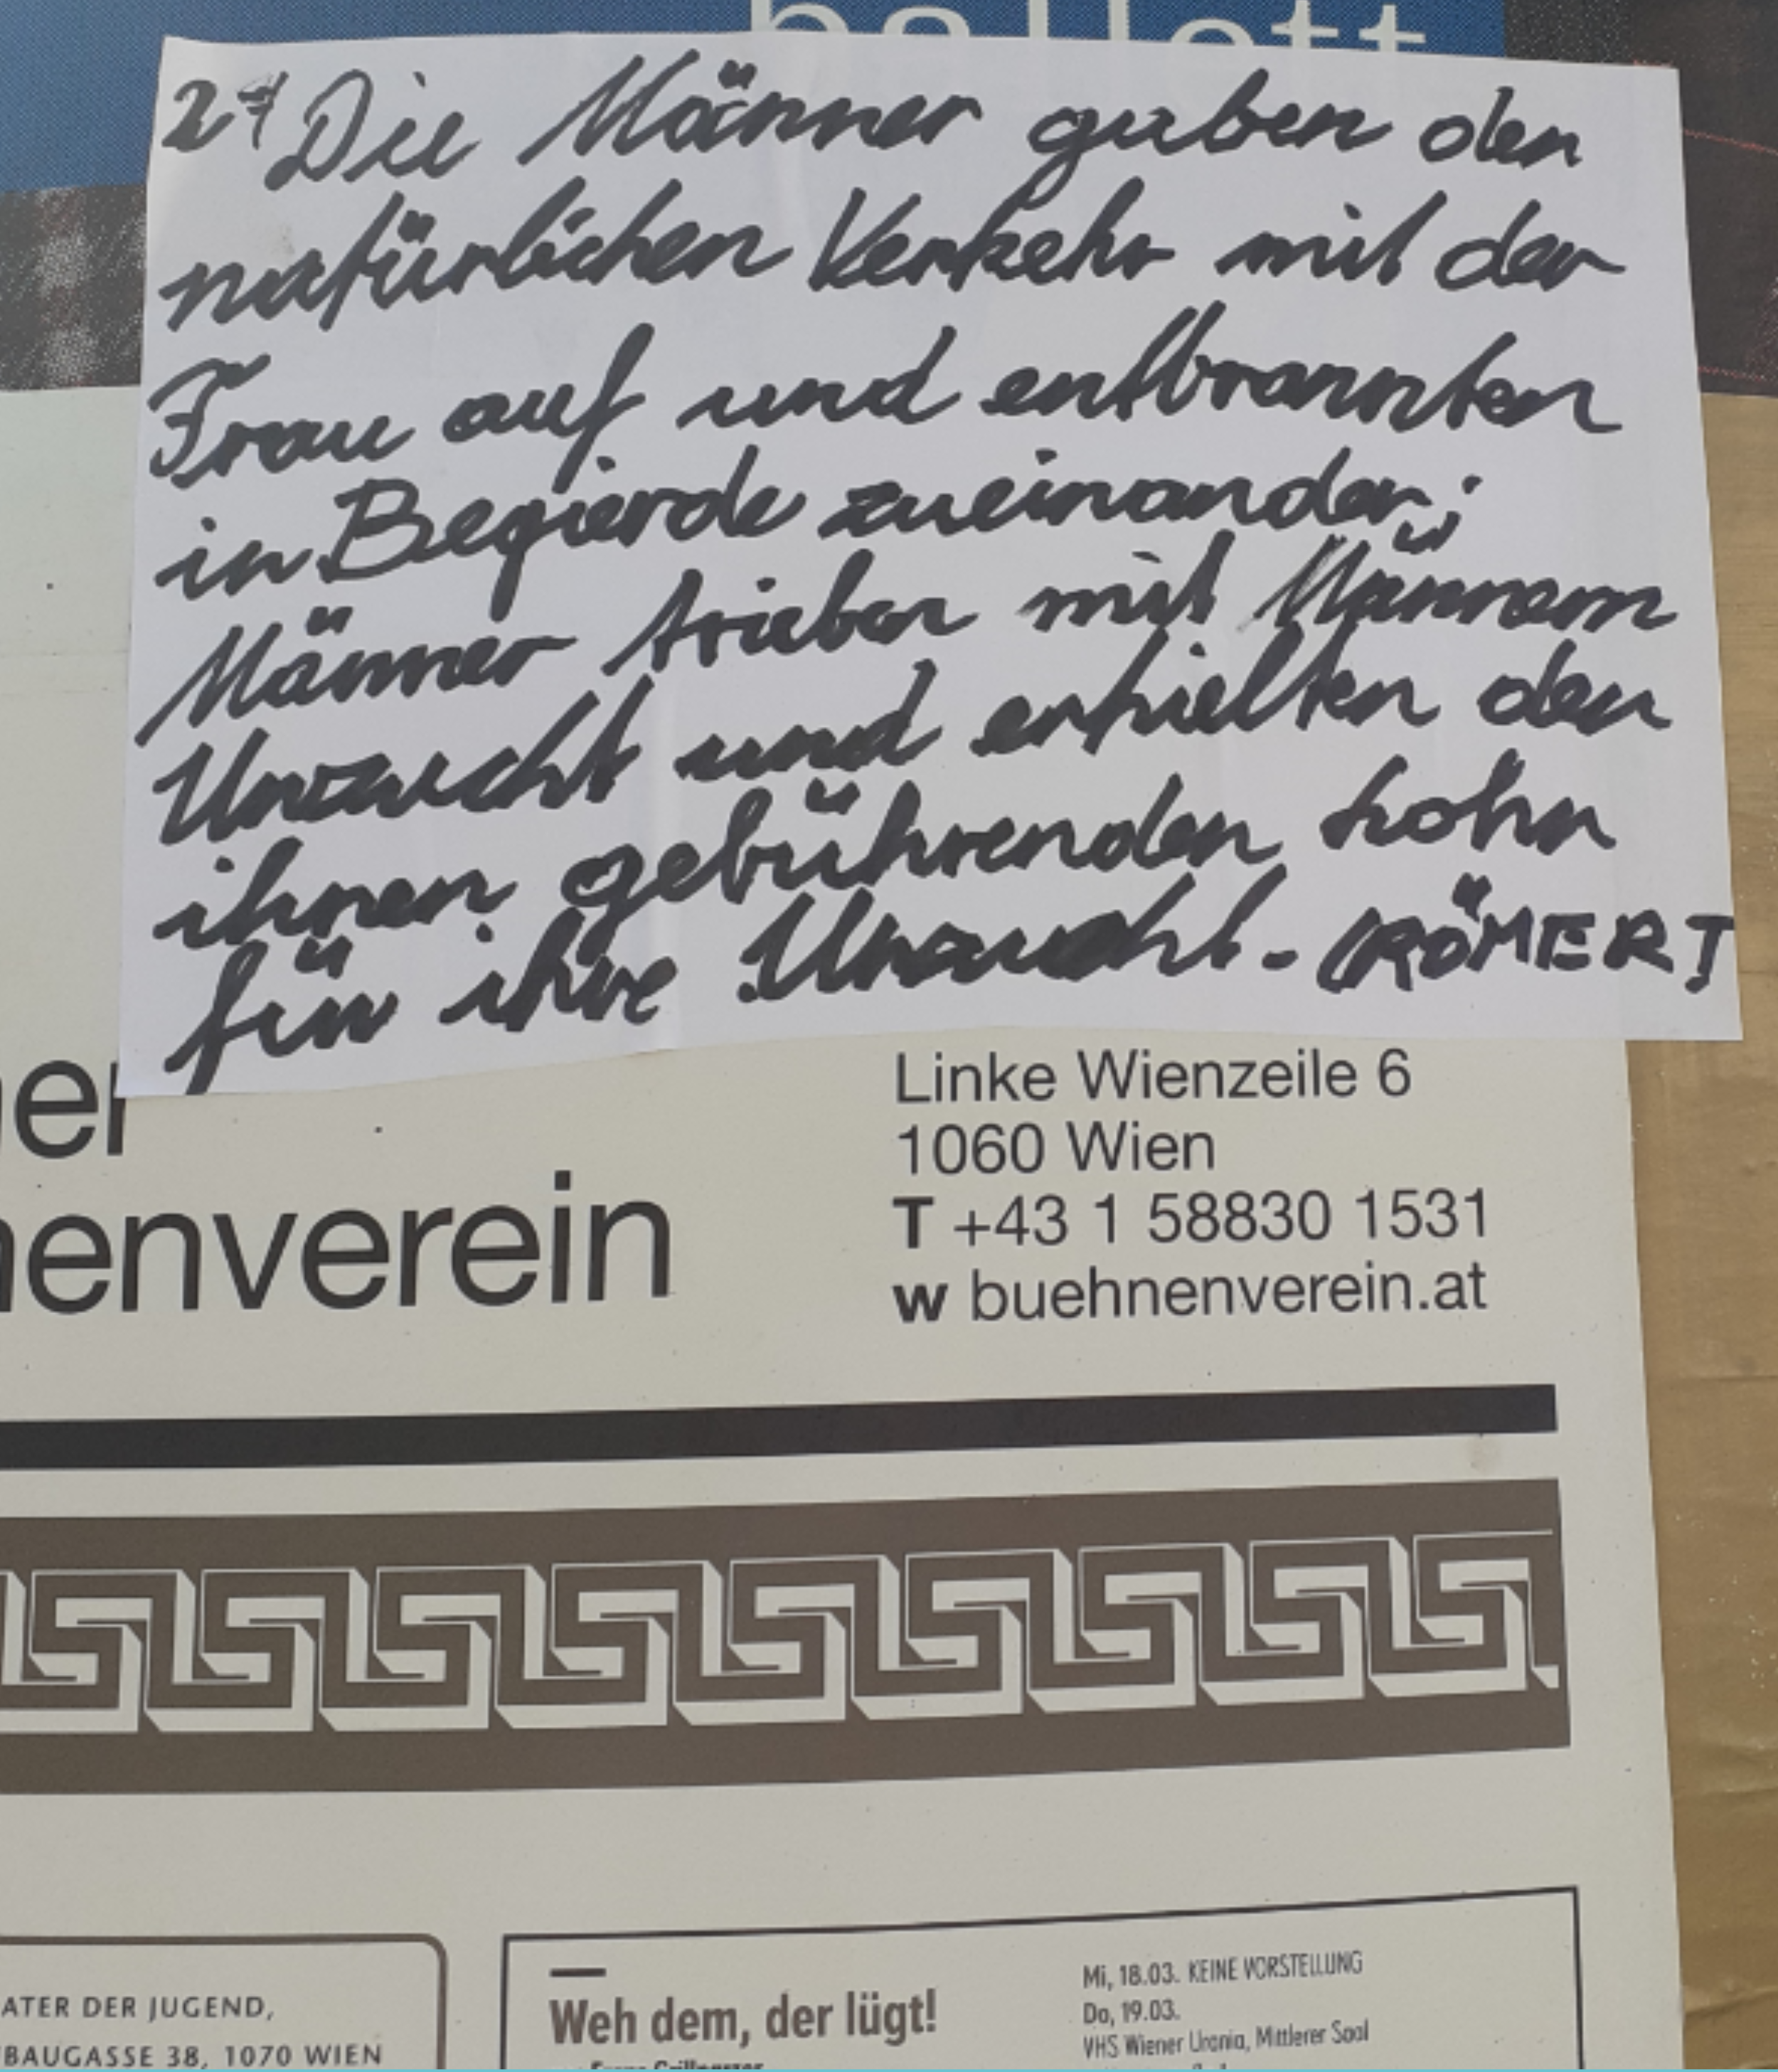 ballett
27 Die Männer gaben den
natürlichen Verkehr mit der
Frau auf und entbrannten
in Begierde zueinander;
Männer trieben mit Männern
Unzucht und erhielten den
ihnen gebührenden Lohn
für ihre Unzucht. (RÖMER 1
ner
nenverein
Linke Wienzeile 6
1060 Wien
T +43 1 58830 1531
w buehnenverein.at
ATER DER JUGEND,
BAUGASSE 38, 1070 WIEN
Weh dem, der lügt!
Mi, 18.03. KEINE VORSTELLUNG
Do, 19.03.
VHS Wiener Urania, Mittlerer Saal